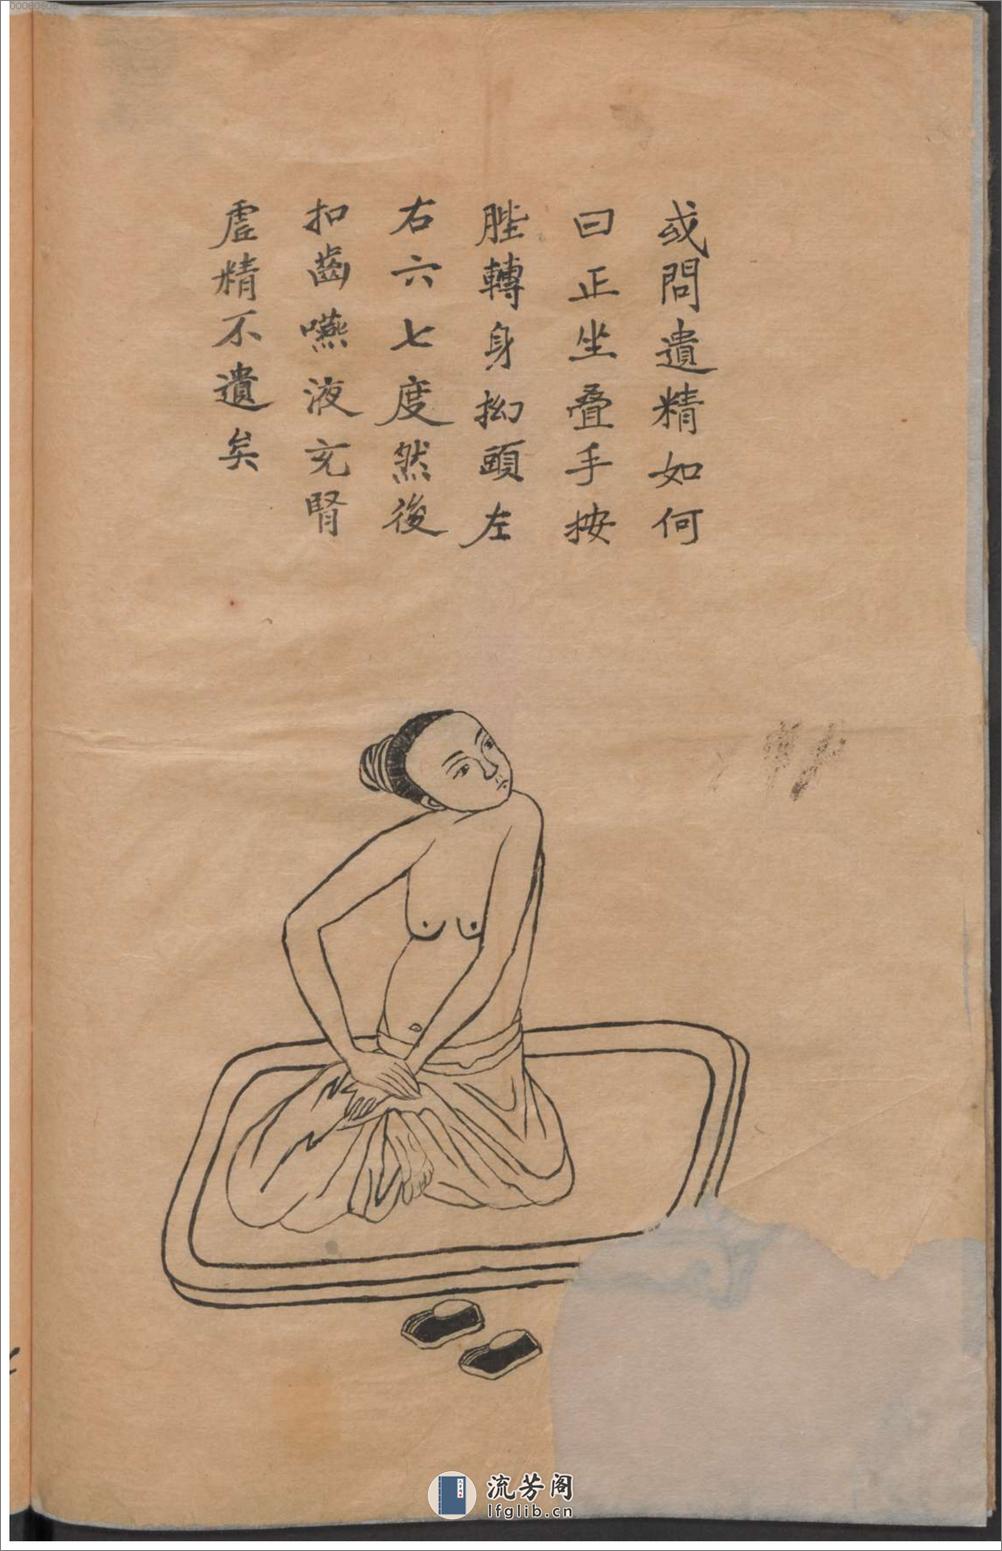 或問遺精如何
曰正坐叠手按
䏶轉身拗頭左
右六七度然後
扣齒嚥液充腎
虗精不遺矣
流芳阁
lfglib.cn